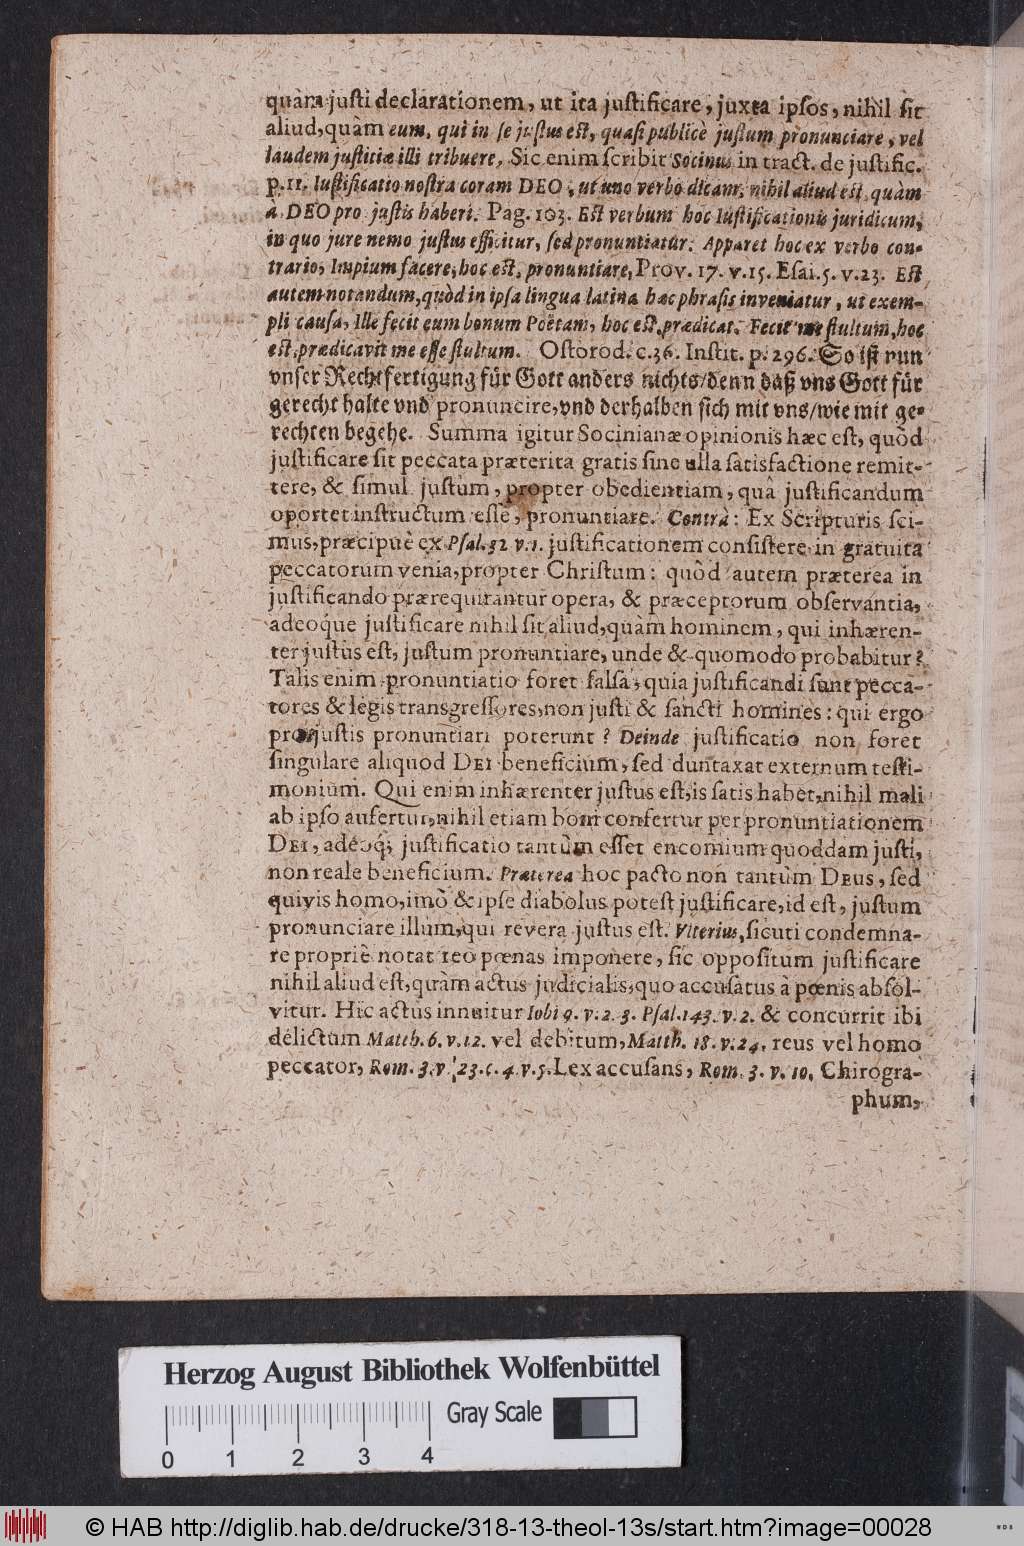 quàm justi declarationem, ut ita justificare, juxta ipsos, nihil sit
aliud, quàm eum, qui in se justus est, quasi publicè justum pronunciare, vel
laudem justitiæ illi tribuere, Sic enim scribit Socinus in tract. de justific.
p. 11. Iustificatio nostra coram DEO, ut uno verbo dicam, nihil aliud est, quàm
à DEO pro justis haberi. Pag. 103. Est verbum hoc Iustificationis juridicum,
in quo jure nemo justus efficitur, sed pronuntiatur. Apparet hoc ex verbo con-
trario, Impium facere, hoc est, pronuntiare, Prov. 17. v. 15. Esai. 5. v. 23. Est
autem notandum, quòd in ipsa lingua latina hæc phrasis inveniatur, ut exem-
pli causa, Ille fecit eum bonum Poëtam, hoc est, prædicat. Fecit me stultum, hoc
est, prædicavit me esse stultum. Ostorod. c. 36. Instit. p. 296. So ist nun
vnser Rechtfertigung für Gott anders nichts/ denn daß vns Gott für
gerecht halte vnd pronuncire, vnd derhalben sich mit vns/ wie mit ge-
rechten begehe. Summa igitur Socinianæ opinionis hæc est, quòd
justificare sit peccata præterita gratis sine ulla satisfactione remit-
tere, & simul justum, propter obedientiam, quâ justificandum
oportet instructum esse, pronuntiare. Contrà: Ex Scripturis sci-
mus, præcipuè ex Psal. 32 v. 1. justificationem consistere in gratuita
peccatorum venia, propter Christum: quòd autem præterea in
justificando prærequirantur opera, & præceptorum observantia,
adeoque justificare nihil sit aliud, quàm hominem, qui inhæren-
ter justus est, justum pronuntiare, unde & quomodo probabitur?
Talis enim pronuntiatio foret falsa, quia justificandi sunt pecca-
tores & legis transgressores, non justi & sancti homines: qui ergo
pro justis pronuntiari poterunt? Deinde justificatio non foret
singulare aliquod DEI beneficium, sed duntaxat externum testi-
monium. Qui enim inhærenter justus est, is satis habet, nihil mali
ab ipso aufertur, nihil etiam boni confertur per pronuntiationem
DEI, adeoq; justificatio tantùm esset encomium quoddam justi,
non reale beneficium. Præterea hoc pacto non tantùm DEUS, sed
quivis homo, imò & ipse diabolus potest justificare, id est, justum
pronunciare illum, qui revera justus est. Vlterius, sicuti condemna-
re propriè notat reo pœnas imponere, sic oppositum justificare
nihil aliud est, quàm actus judicialis, quo accusatus à pœnis absol-
vitur. Hic actus innuitur Iobi 9. v. 2. 3. Psal. 143. v. 2. & concurrit ibi
delictum Matth. 6. v. 12. vel debitum, Matth. 18. v. 24. reus vel homo
peccator, Rom. 3. v. 23. c. 4. v. 5. Lex accusans, Rom. 3. v. 10. Chirogra-
phum,
Herzog August Bibliothek Wolfenbüttel
Gray Scale
0 1 2 3 4
© HAB http://diglib.hab.de/drucke/318-13-theol-13s/start.htm?image=00028